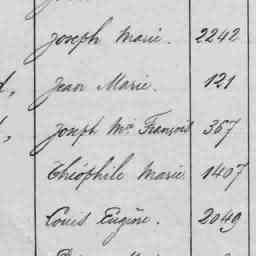 Joseph Marie. 2242
Jean Marie. 121
Joseph Mie François 367
Théophile Marie 1407
Louis Eugène. 2049